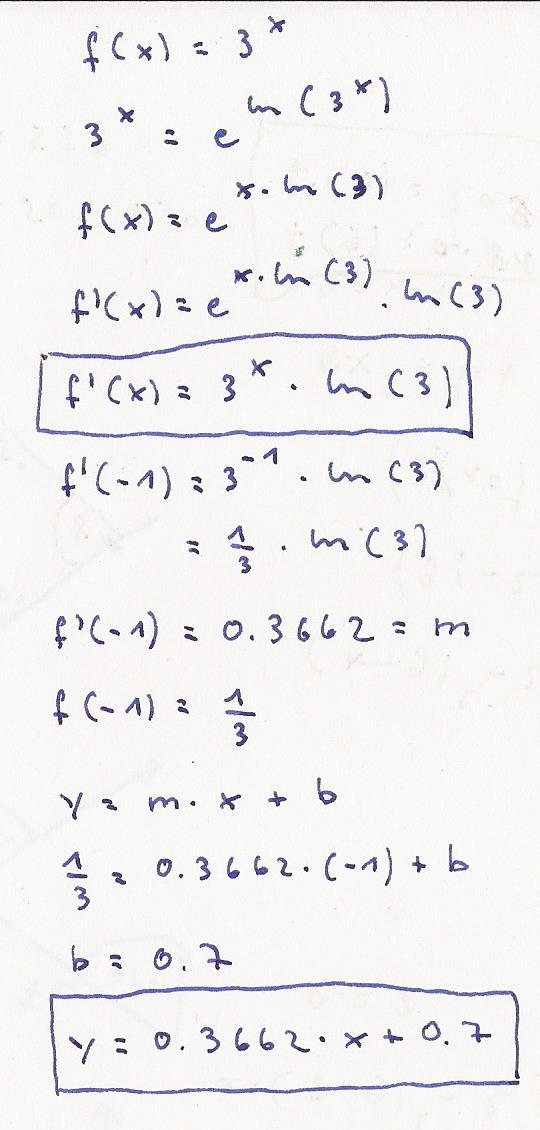 f(x) = 3^x
3^x = e^ln(3^x)
f(x) = e^x·ln(3)
f'(x) = e^x·ln(3) · ln(3)
f'(x) = 3^x · ln(3)
f'(-1) = 3^-1 · ln(3)
= 1/3 · ln(3)
f'(-1) = 0.3662 = m
f(-1) = 1/3
y = m·x + b
1/3 = 0.3662·(-1) + b
b = 0.7
y = 0.3662·x + 0.7